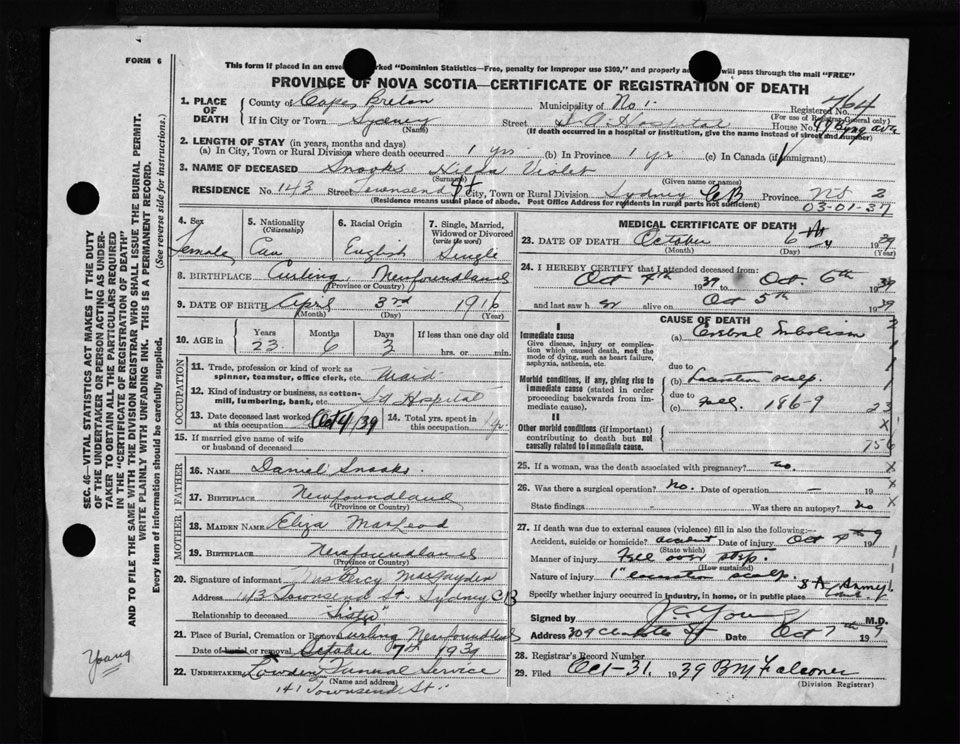 FORM 6
This form if placed in an enve ked "Dominion Statistics—Free, penalty for improper use $300," and properly a will pass through the mail "FREE"
PROVINCE OF NOVA SCOTIA—CERTIFICATE OF REGISTRATION OF DEATH
1. PLACE OF DEATH County of Cape Breton Municipality of No 1. Registered No. 764
(For use of Registrar-General only)
If in City or Town Sydney (Name) Street Hospital House No. 49 Byng ave
(If death occurred in a hospital or institution, give the name instead of street and number)
2. LENGTH OF STAY (in years, months and days)
(a) In City, Town or Rural Division where death occurred 1 yrs (b) In Province 1 yr (c) In Canada (if immigrant)
3. NAME OF DECEASED Snooks Hilda Violet
(Surname) (Given name or names)
RESIDENCE No. 143 Street Townsend St City, Town or Rural Division Sydney CB Province NS 2
(Residence means usual place of abode. Post Office Address for residents in rural parts not sufficient) 03-01-37
4. Sex Female
5. Nationality (Citizenship) Can
6. Racial Origin English
7. Single, Married, Widowed or Divorced (write the word) Single
8. BIRTHPLACE Curling Newfoundland
(Province or Country)
9. DATE OF BIRTH April 3rd 1916
(Month) (Day) (Year)
10. AGE in Years 23 Months 6 Days 3 If less than one day old hrs. or min.
OCCUPATION
11. Trade, profession or kind of work as spinner, teamster, office clerk, etc. Maid
12. Kind of industry or business, as cotton-mill, lumbering, bank, etc. Hospital
13. Date deceased last worked at this occupation Oct 4/39 14. Total yrs. spent in this occupation 1 yr
15. If married give name of wife or husband of deceased
FATHER
16. NAME Daniel Snooks
17. BIRTHPLACE Newfoundland
(Province or Country)
MOTHER
18. MAIDEN NAME Eliza MacLeod
19. BIRTHPLACE Newfoundland
(Province or Country)
20. Signature of informant Mrs Percy
Address 143 Townsend St. Sydney CB
Relationship to deceased "Sister"
21. Place of Burial, Cremation or Removal Curling Newfoundland
Date of burial or removal October 7th 1939
22. UNDERTAKER Lowden Funeral Service
(Name and address)
141 Townsend St.
MEDICAL CERTIFICATE OF DEATH
23. DATE OF DEATH October 6th 1939
(Month) (Day) (Year)
24. I HEREBY CERTIFY that I attended deceased from:
Oct 4th 1939 to Oct. 6th 1939
and last saw h er alive on Oct 5th 1939
CAUSE OF DEATH
I
Immediate cause
Give disease, injury or complication which caused death, not the mode of dying, such as heart failure, asphyxia, asthenia, etc.
(a) Cerebral Embolism
due to
Morbid conditions, if any, giving rise to immediate cause (stated in order proceeding backwards from immediate cause).
(b) scalp.
due to
(c) Fall. 186-9
II
Other morbid conditions (if important) contributing to death but not causally related to immediate cause.
25. If a woman, was the death associated with pregnancy? no.
26. Was there a surgical operation? No. Date of operation — 19
State findings — Was there an autopsy? no
27. If death was due to external causes (violence) fill in also the following:—
Accident, suicide or homicide? accident Date of injury Oct 4th 9
(State which)
Manner of injury Fell over step.
(How sustained)
Nature of injury 1" scalp.
Specify whether injury occurred in industry, in home, or in public place
Signed by J. C. Young M.D.
Address 309 Charlotte St Date Oct 7th 19
28. Registrar's Record Number
29. Filed Oct-31. 1939 BM Falconer
(Division Registrar)
SEC. 46—VITAL STATISTICS ACT MAKES IT THE DUTY
OF THE UNDERTAKER OR PERSON ACTING AS UNDER-
TAKER TO OBTAIN ALL THE PARTICULARS REQUIRED
IN THE "CERTIFICATE OF REGISTRATION OF DEATH"
AND TO FILE THE SAME WITH THE DIVISION REGISTRAR WHO SHALL ISSUE THE BURIAL PERMIT.
WRITE PLAINLY WITH UNFADING INK. THIS IS A PERMANENT RECORD.
Every item of information should be carefully supplied. (See reverse side for instructions.)
Young